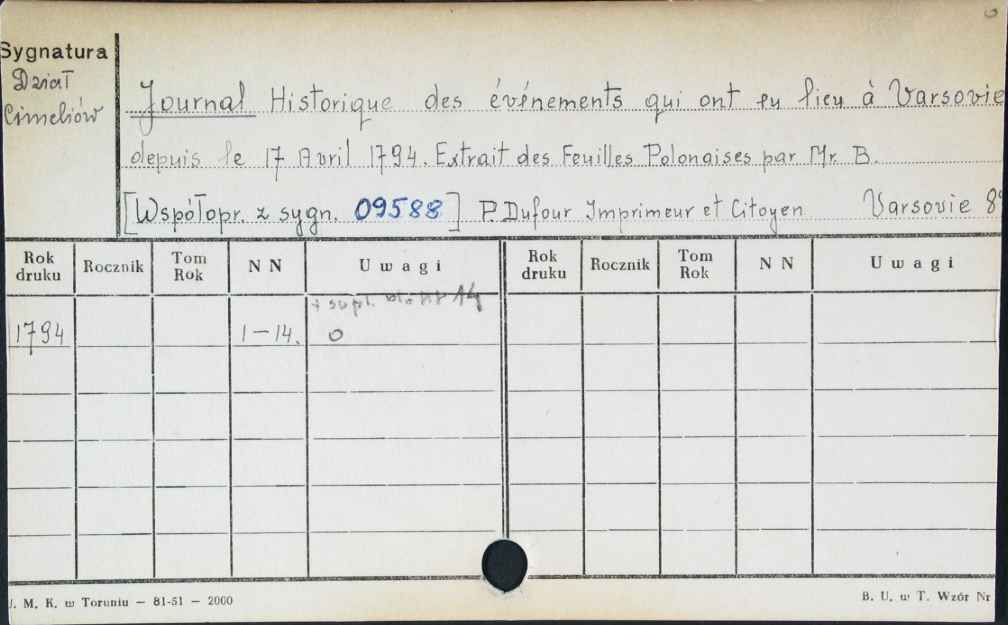 Sygnatura
Dział
Cimeliów
Journal Historique des événements qui ont eu lieu à Varsovie
depuis le 17 Avril 1794. Extrait des Feuilles Polonaises par Mr. B.
[Współopr. z sygn. 09588] P. Dufour Imprimeur et Citoyen Varsovie 8°
Rok druku Rocznik Tom Rok NN Uwagi Rok druku Rocznik Tom Rok NN Uwagi
+ supl. 14
1794 1-14. 0
J. M. K. w Toruniu — 81-51 — 2000 B. U. w T. Wzór Nr